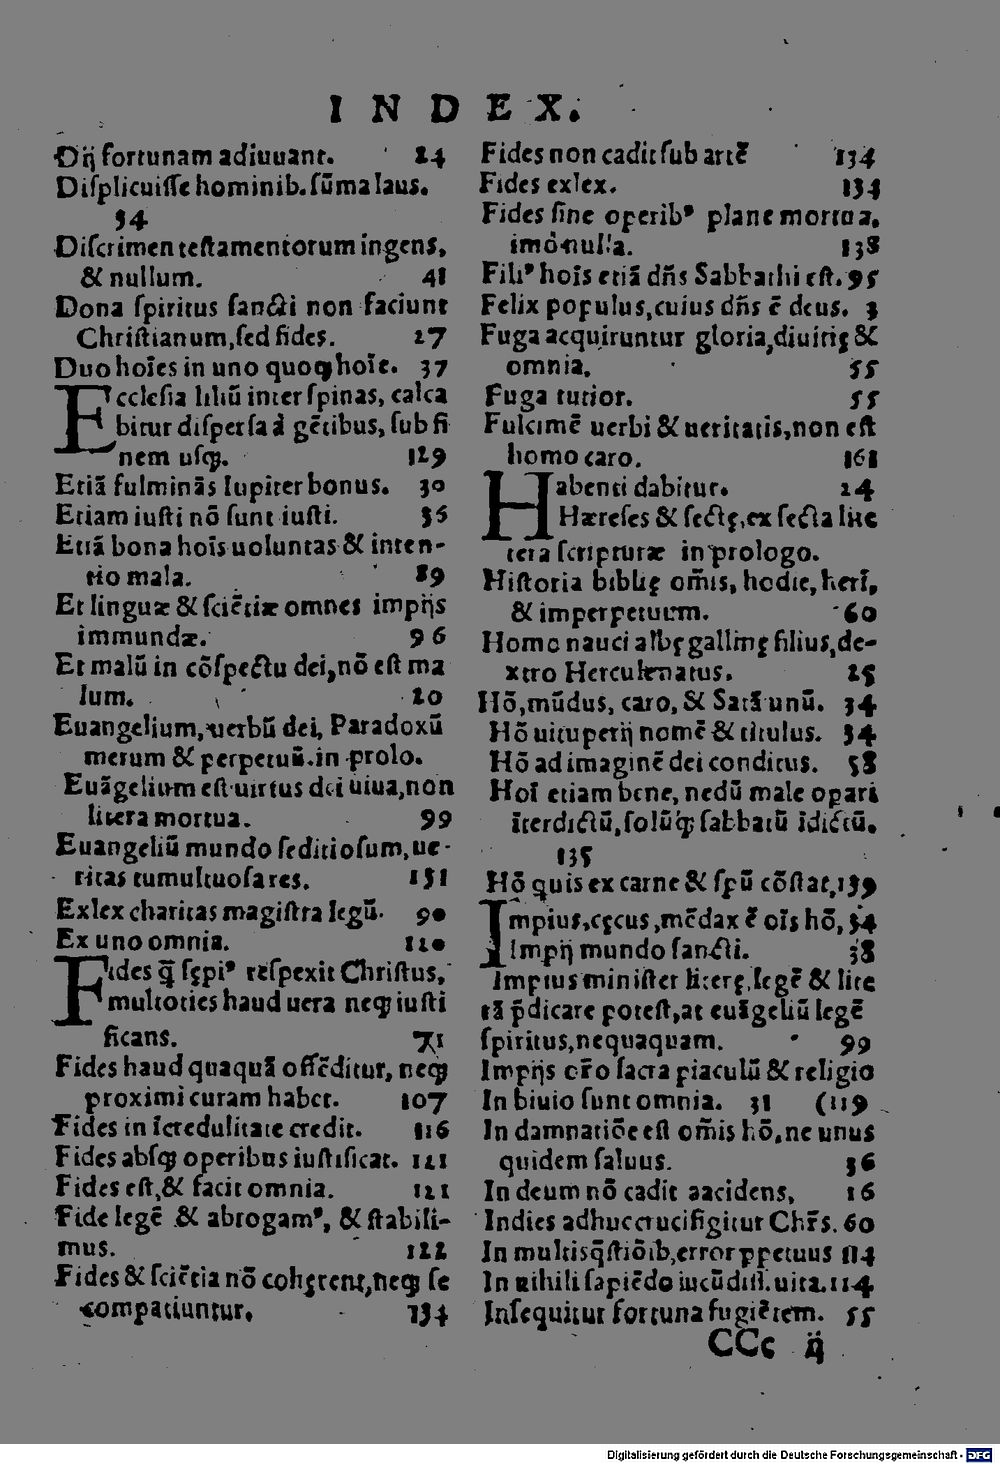 INDEX.
Dij fortunam adiuuant. 24
Diſplicuiſſe hominib. ſūma laus.
54
Diſcrimen teſtamentorum ingens,
& nullum. 41
Dona ſpiritus ſancti non faciunt
Chriſtianum, ſed fides. 27
Duo hoīes in uno quoqꝫ hoīe. 37
Eccleſia liliū inter ſpinas, calca
bitur diſperſa à gētibus, ſub fi
nem uſqꝫ. 129
Etiā fulminās Iupiter bonus. 30
Etiam iuſti nō ſunt iuſti. 36
Etiā bona hoīs uoluntas & inten-
tio mala. 89
Et linguæ & ſciētiæ omnes impijs
immundæ. 96
Et malū in cōſpectu dei, nō eſt ma
lum. 20
Euangelium, uerbū dei, Paradoxū
merum & perpetuū. in prolo.
Euāgelium eſt uirtus dei uiua, non
litera mortua. 99
Euangeliū mundo ſeditioſum, ue-
ritas tumultuoſa res. 151
Exlex charitas magiſtra legū. 90
Ex uno omnia. 120
Fides q̄ ſępiꝰ reſpexit Chriſtus,
multoties haud uera neqꝫ iuſti
ficans. 71
Fides haud quaquā offēditur, neqꝫ
proximi curam habet. 107
Fides in īcredulitate credit. 116
Fides abſqꝫ operibus iuſtificat. 121
Fides eſt, & facit omnia. 121
Fide legē & abrogamꝰ, & ſtabili-
mus. 122
Fides & ſciētia nō cohęrent, neqꝫ ſe
compatiuntur. 134
Fides non cadit ſub artē 134
Fides exlex. 134
Fides ſine operibꝰ plane mortua,
imò nulla. 138
Filiꝰ hoīs etiā dn̄s Sabbathi eſt. 95
Felix populus, cuius dn̄s ē deus. 3
Fuga acquiruntur gloria, diuitię &
omnia. 55
Fuga tutior. 55
Fulcimē uerbi & ueritatis, non eſt
homo caro. 161
Habenti dabitur. 24
Hæreſes & ſectę, ex ſecta lite
tera ſcripturæ in prologo.
Hiſtoria biblię om̄is, hodie, herī,
& imperpetuum. 60
Homo nauci albę gallinę filius, de-
xtro Hercule natus. 25
Hō, mūdus, caro, & Satā unū. 34
Hō uituperij nomē & titulus. 34
Hō ad imaginē dei conditus. 58
Hoī etiam bene, nedū male opari
īterdictū, ſolū qꝫ ſabbatū īdictū.
135
Hō quis ex carne & ſpū cōſtat, 139
Impius, cęcus, mēdax ē oīs hō, 34
Impij mundo ſancti. 38
Impius miniſter literę, legē & lite
rā p̄dicare poteſt, at euāgeliū legē
ſpiritus, nequaquam. 99
Impijs or̄o ſacra piaculū & religio
In biuio ſunt omnia. 31 (119
In damnatiōe eſt om̄is hō, ne unus
quidem ſaluus. 36
In deum nō cadit aacidens, 16
Indies adhuc crucifigitur Chr̄s. 60
In multis q̄ſtiōib, error ppetuus 114
In nihili ſapiēdo iucūdiſſ. uita. 114
Inſequitur fortuna fugiētem. 55
CCc ij
Digitalisierung gefördert durch die Deutsche Forschungsgemeinschaft - DFG